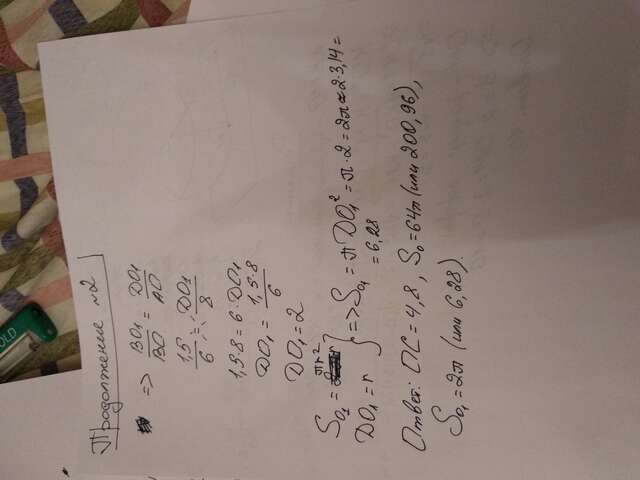 Продолжение №2
=> BO₁/BO = DO₁/AO
1,5/6 = DO₁/8
1,5·8 = 6·DO₁
DO₁ = 1,5·8/6
DO₁ = 2
S₀₁ = πr²
DO₁ = r } => S₀₁ = π DO₁² = π·2 = 2π ≈ 2·3,14 =
= 6,28
Ответ: ОС = 4,8, S₀ = 64π (или 200,96),
S₀₁ = 2π (или 6,28).